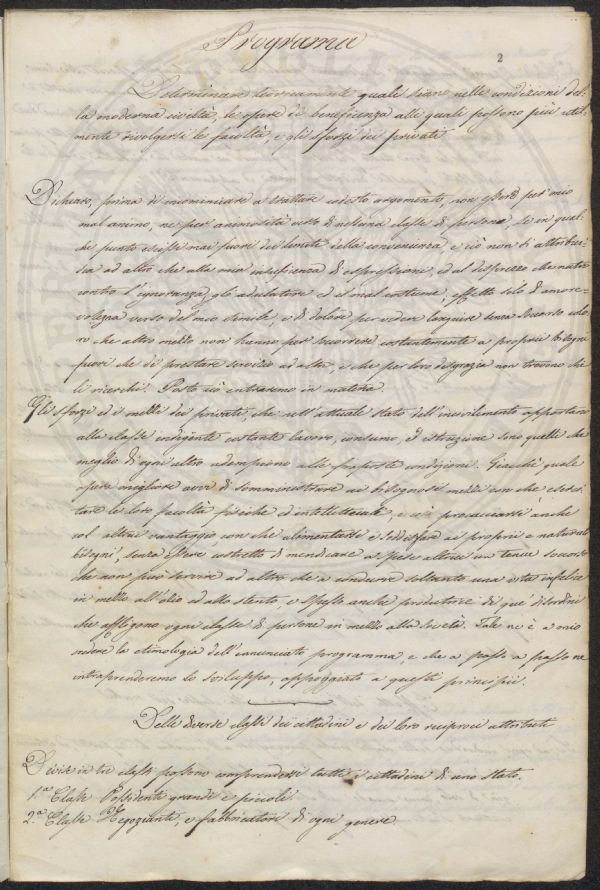 Programa
2
Determinare teoricamente quali siano nelle condizioni del-
la moderna civiltà, le opere di beneficienza alle quali possono più util-
mente rivolgersi le facoltà, e gli sforzi dei privati
Dichiaro, prima di incominciare a trattare codesto argomento, non essere per mio
mal animo, ne per animosità verso di nessuna classe di persone, se in qual-
che punto escissi mai fuori dei limiti della convenienza e ciò non si attribui-
sca ad altro che alla mia insufficienza di espressioni, ed al disprezzo che nutro
contro l'ignoranza, gli adulatori ed il mal costume, effetto solo di amore-
volezza verso del mio simile, e di dolore per vedere languire senza soccorso colo-
ro che altro mezzo non hanno per soccorrere costantemente a proprii bisogni
fuori che di prestare servizio ad altri, e che per loro disgrazia non trovano chi
li ricerchi. Posto ciò entraremo in materia.
Gli sforzi ed i mezzi dei privati, che nell'attuale stato dell'incivilimento apportano
alla classe indigente costante lavoro, consumo, ed istruzione sono quelli che
meglio di ogni altro adempiono alle proposte condizioni. Giacchè quale
opera migliore avvi di somministrare ai bisognosi mezzi con che eserci-
tare le loro facoltà fisiche ed intellettuali, e procacciarsi anche
col altrui vantaggio con che alimentarsi e soddisfare ai proprii e naturali
bisogni, senza essere costretti di mendicare a spese altrui un tenue soccorso
che non può servire ad altro che a condurre soltanto una vita infelice
in mezzo all'ozio ed allo stento, e spesso anche produttore di que' disordini
che affliggono ogni classe di persone in mezzo alla società. Tale ne è a mio
vedere la etimologia dell'annunciato programma, e che a passo a passo ne
intraprenderemo lo sviluppo, appoggiato a questi principii.
Delle diverse classi dei cittadini e dei loro reciproci attributi
Divise in tre classi possono comprendersi tutti i cittadini di uno stato.
1.ª Classe Possidenti grandi e piccoli
2.ª Classe Negozianti, e fabbricatori di ogni genere